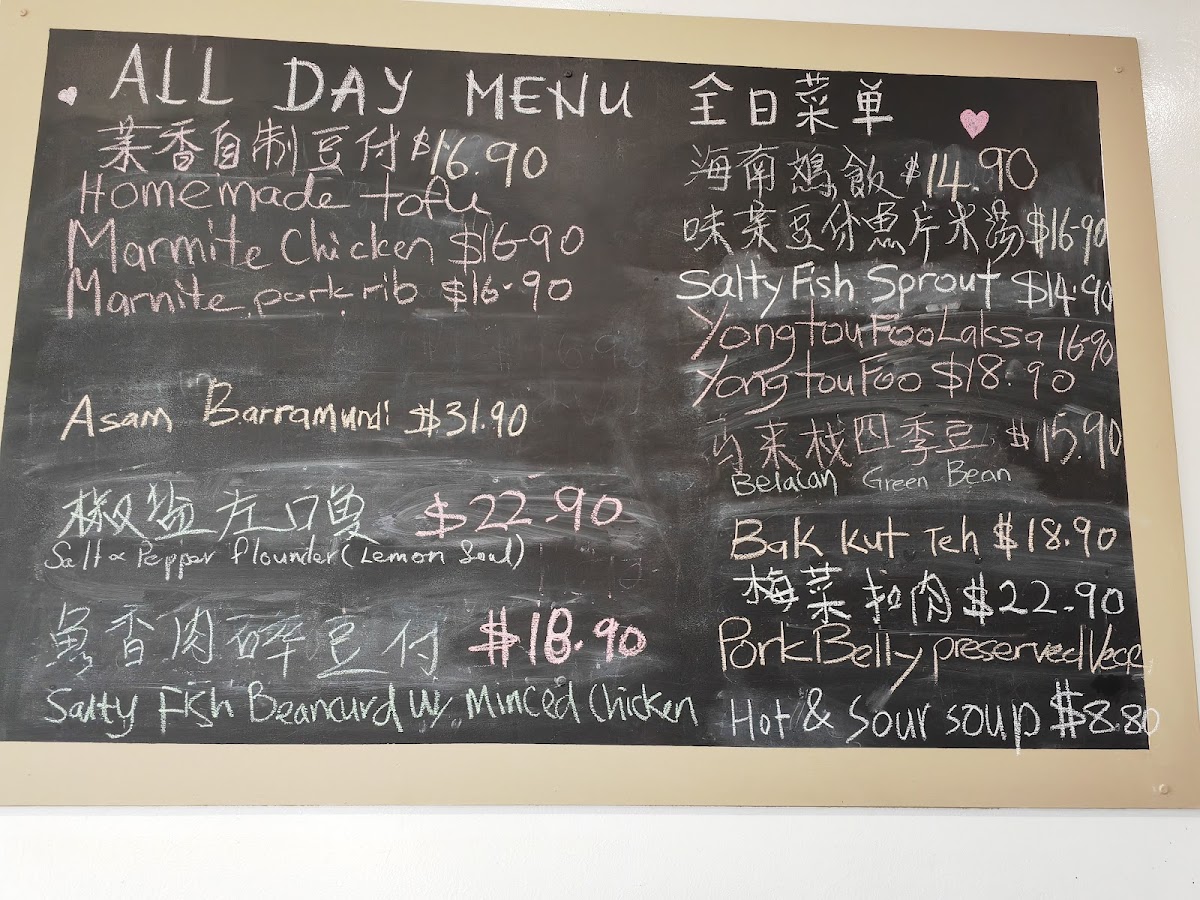 ALL DAY MENU 全日菜单
茉香自制豆付 $16.90
Homemade tofu
Marmite Chicken $16-90
Marnite pork rib $16-90
Asam Barramundi $31.90
椒盐左口魚 $22.90
Salt & Pepper flounder (Lemon Soul)
魚香肉碎豆付 $18.90
Salty Fish Beancurd W/ Minced Chicken
海南鸡飯 $14.90
味菜豆付魚片米湯 $16-90
Salty Fish Sprout $14.90
Yong tou Foo Laksa 16-90
Yong tou Foo $18.90
马来栈四季豆 $15.90
Belacan Green Bean
Bak kut Teh $18.90
梅菜扣肉 $22.90
Pork Belly preserved Vege
Hot & Sour soup $8.80